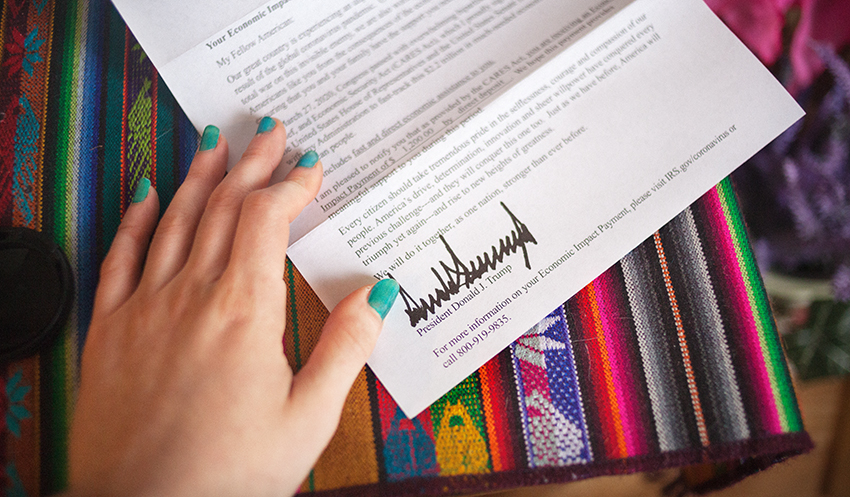 Your Economic Impact
My Fellow American:
Our great country is experiencing an
result of the global coronavirus pandemic.
total war on this invisible enemy, we are also
Americans like you and your family have the support
March 27, 2020, Congress passed
and Economic Security Act (CARES Act), which I proudly
United States House of Representatives and the U.S. Senate
Administration to fast-track this $2.2 trillion in much-needed
people.
includes fast and direct economic assistance to you.
I am pleased to notify you that as provided by the CARES Act, you are receiving an
Impact Payment of $ 1,200.00 by direct deposit. We hope this payment provides
meaningful support to you during this period.
Every citizen should take tremendous pride in the selflessness, courage and compassion of our
people. America's drive, determination, innovation and sheer willpower have conquered every
previous challenge—and they will conquer this one too. Just as we have before, America will
triumph yet again—and rise to new heights of greatness.
We will do it together, as one nation, stronger than ever before.
President Donald J. Trump
For more information on your Economic Impact Payment, please visit IRS.gov/coronavirus or
call 800-919-9835.